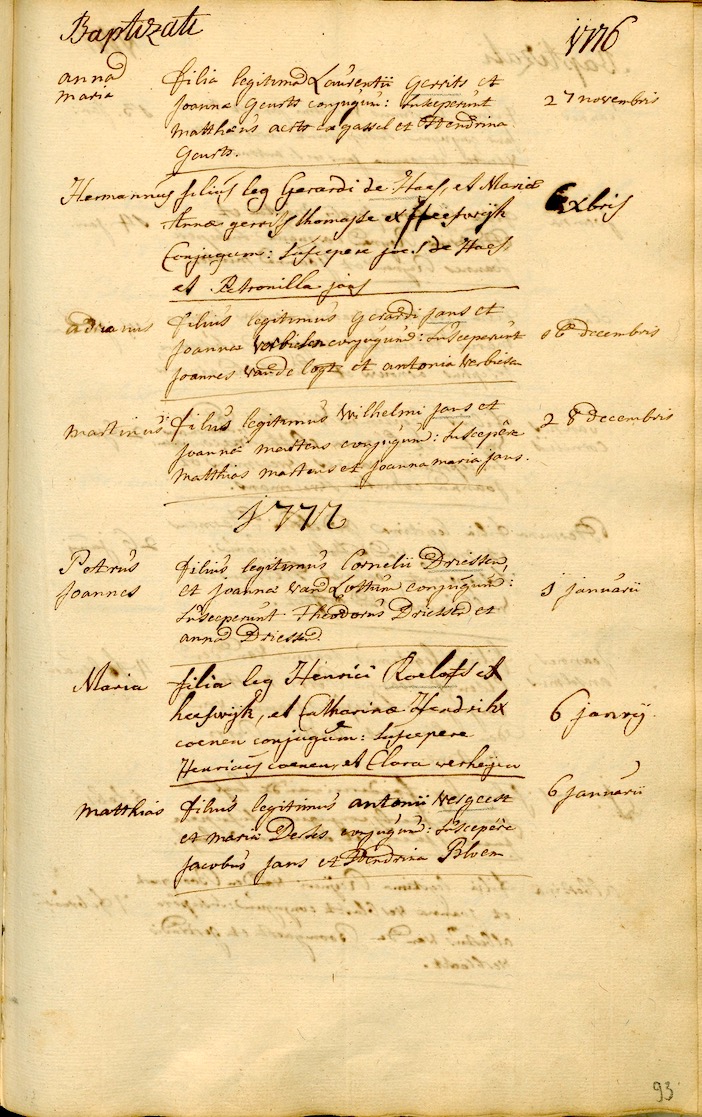 Baptizati 1776
anna maria filia legitima Laurentii Gerrits et
Joanna Geurts conjugum: susceperunt 27 novembris
Matthaeus aerts ex gassel et Hendrina
Geurts.
Hermannus filius leg Gerardi de Haes, et Maria
Annae gerriss thomasse ex Heeswijk xbris
Conjugum: suscepere jois de Haes
et Petronilla jans
adrianus filius legitimus Gerardi jans et
Joanna verbieten conjugum: susceperunt 6 decembris
Joannes van de logt et antonia verbieten
martinus filius legitimus Wilhelmi jans et 28 decembris
Joanna martens conjugum: suscepere
Matthias martens et Joanna maria jans.
1777
Petrus filius legitimus Cornelii Driessen,
Joannes et Joanna van Lottum conjugum: 1 januarii
susceperunt Theodorus Driessen et
anna Driessen
Maria filia leg Henrici Roelofs ex
heeswijk, et Catharinae Hendrikx 6 janrij
coenen conjugum: suscepere
Henricus coenen, et Clara verheijen
matthias filius legitimus antonii Versgeest 6 januarii
et maria conjugum: suscepere
Jacobus jans et Hendrina Bloem
93